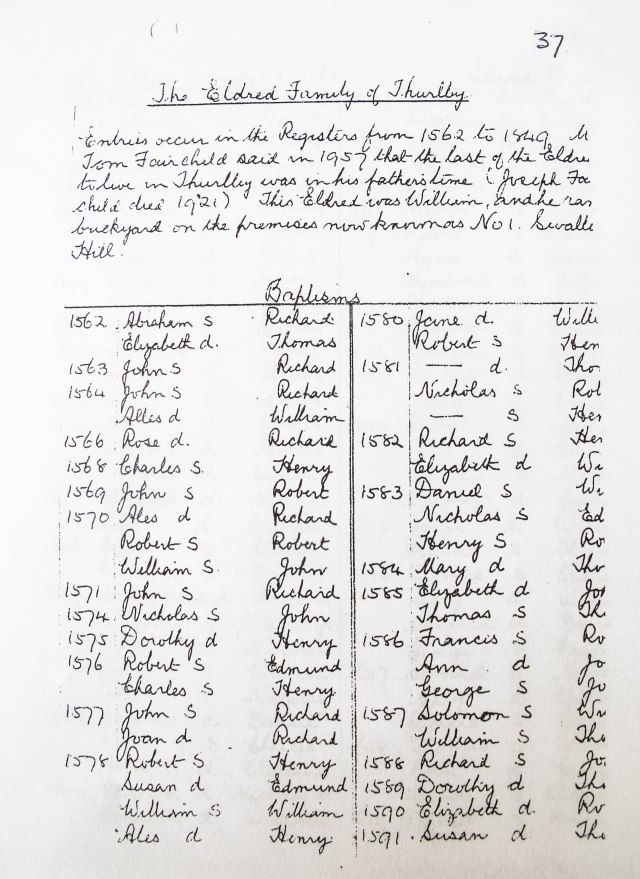 37
The Eldred Family of Thurlby
Entries occur in the Registers from 1562 to 1849 M
Tom Fairchild said in 1957 that the last of the Eldre
to live in Thurlby was in his father's time (Joseph Fa
child died 1921) This Eldred was William, and he ran
buckyard on the premises now known as No 1.
Hill.
Baptisms
1562 Abraham S Richard
Elizabeth d. Thomas
1563 John S Richard
1564 John S Richard
Alles d William
1566 Rose d. Richard
1568 Charles S. Henry
1569 John S Robert
1570 Ales d Richard
Robert S Robert
William S. John
1571 John S Richard
1574 Nicholas S John
1575 Dorothy d Henry
1576 Robert S Edmund
Charles S Henry
1577 John S Richard
Joan d Richard
1578 Robert S Henry
Susan d Edmund
William S William
Ales d Henry
1580 Jane d. Willi
Robert S Hen
1581 — d. Tho
Nicholas S Rob
— S Hen
1582 Richard S Hen
Elizabeth d Wi
1583 Daniel S Wi
Nicholas S Ed
Henry S Ro
1584 Mary d Tho
1585 Elizabeth d Jo
Thomas S Th
1586 Francis S Ro
Ann d Jo
George S Jo
1587 Solomon S Wi
William S Tho
1588 Richard S Jo
1589 Dorothy d Tho
1590 Elizabeth d. Ro
1591 Susan d Tho